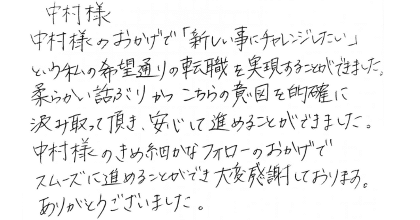 中村様
中村様のおかげで「新しい事にチャレンジしたい」
という私の希望通りの転職を実現することができました。
柔らかい話ぶりかつこちらの意図を的確に
汲み取って頂き、安心して進めることができました。
中村様のきめ細かなフォローのおかげで
スムーズに進めることができ大変感謝しております。
ありがとうございました。